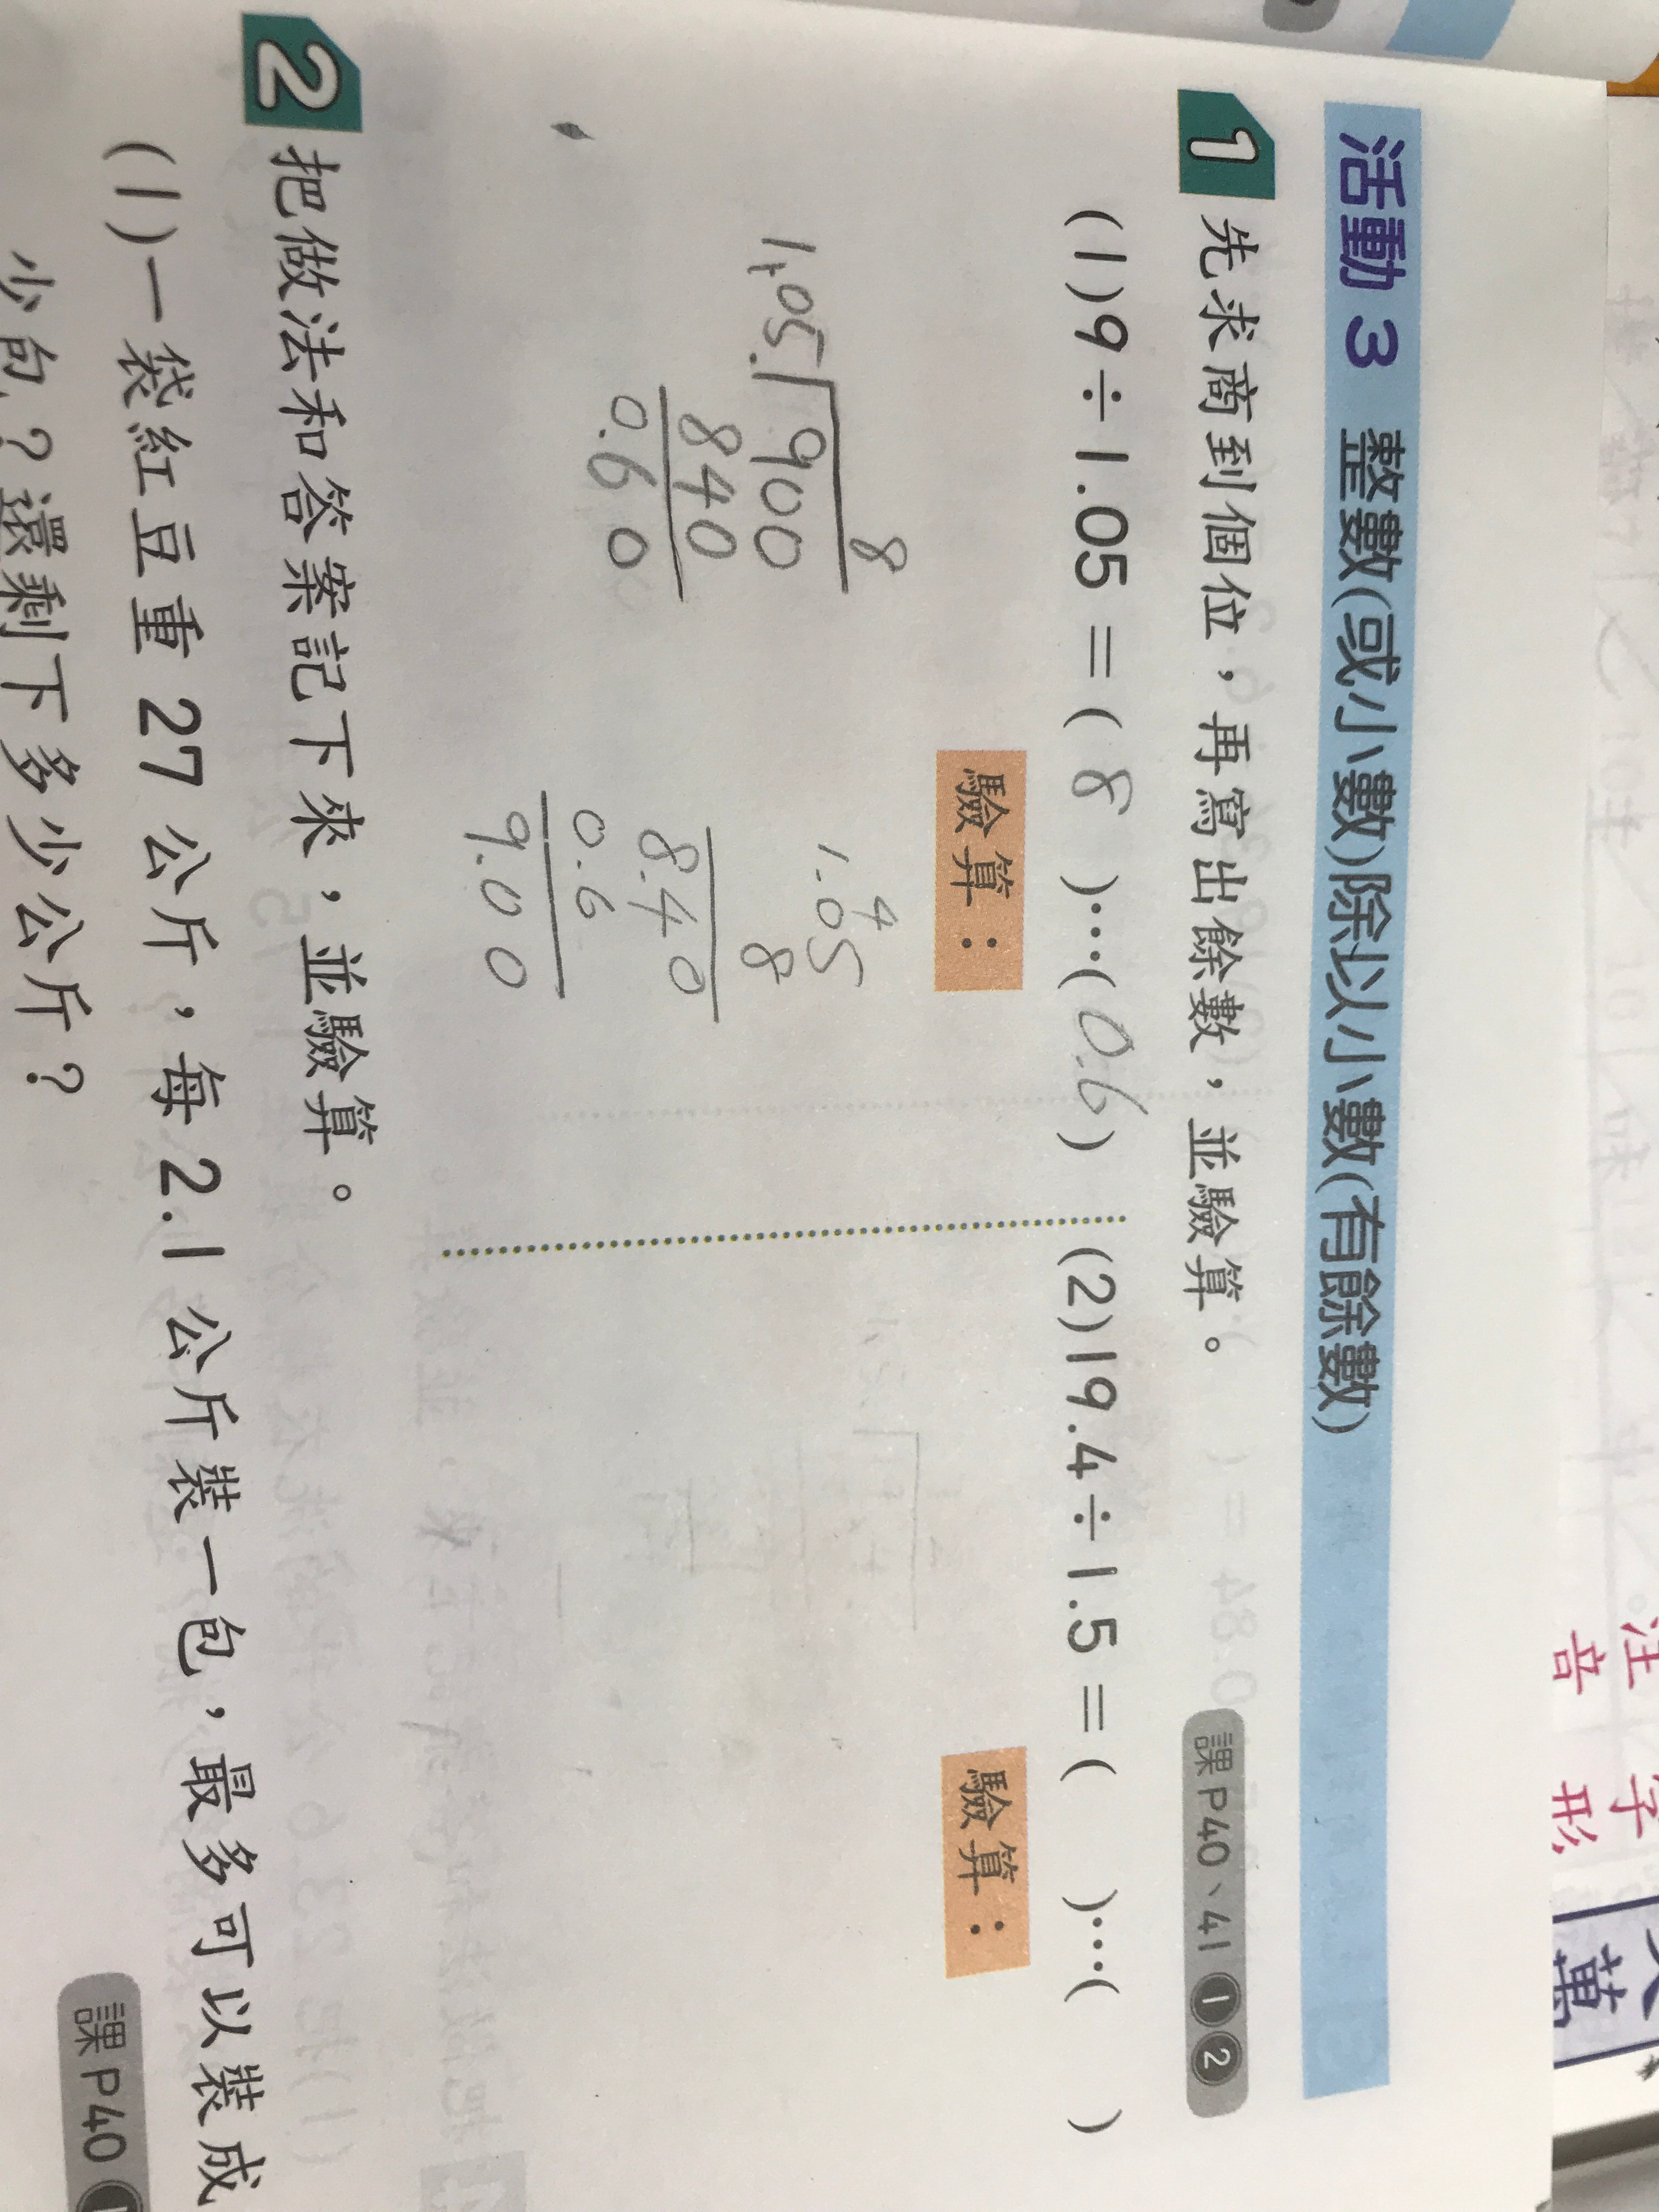 活動 3 整數(或小數)除以小數(有餘數)
1 先求商到個位，再寫出餘數，並驗算。
課 P40、41 1 2
(1)9÷1.05=( 8 )…( 0.6 )
(2)19.4÷1.5=(    )…(    )
8
1.05 900
840
0.60
驗算：
4
1.05
8
8.40
0.6
9.00
驗算：
2 把做法和答案記下來，並驗算。
(1)一袋紅豆重 27 公斤，每 2.1 公斤裝一包，最多可以裝成
少包？還剩下多少公斤？
課 P40
注音
字形